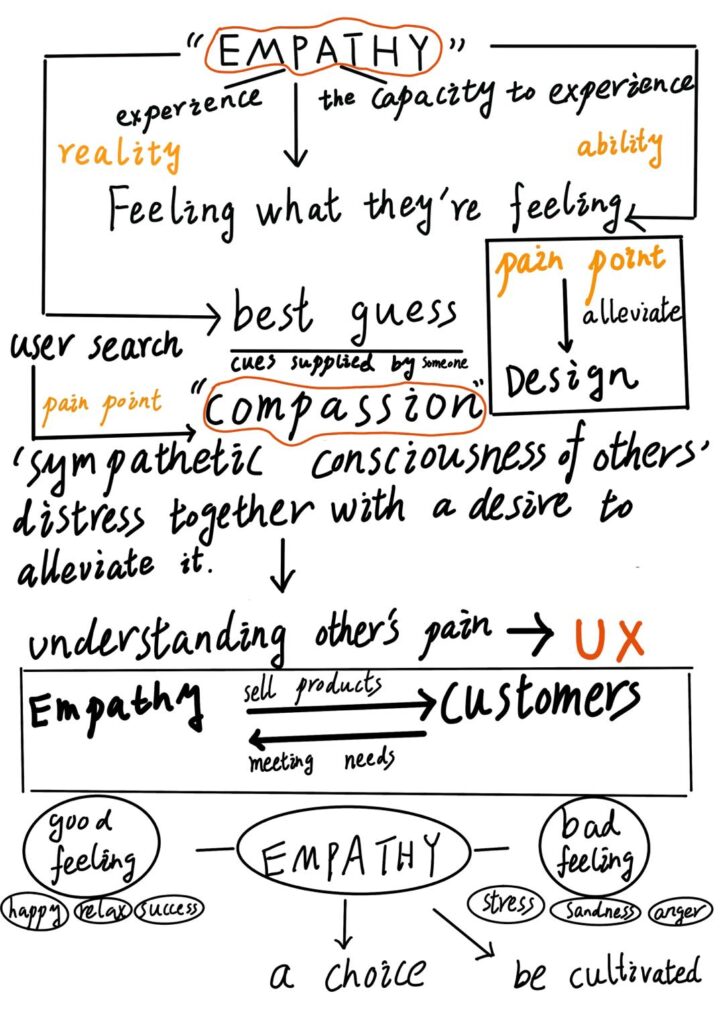 "EMPATHY"
experience
the capacity to experience
reality
ability
Feeling what they're feeling
pain point
alleviate
Design
best guess
cues supplied by someone
user search
pain point
"compassion"
'sympathetic consciousness of others'
distress together with a desire to
alleviate it.
understanding other's pain → UX
Empathy
sell products
customers
meeting needs
good
feeling
EMPATHY
bad
feeling
happy
relax
success
stress
sandness
anger
a choice
be cultivated